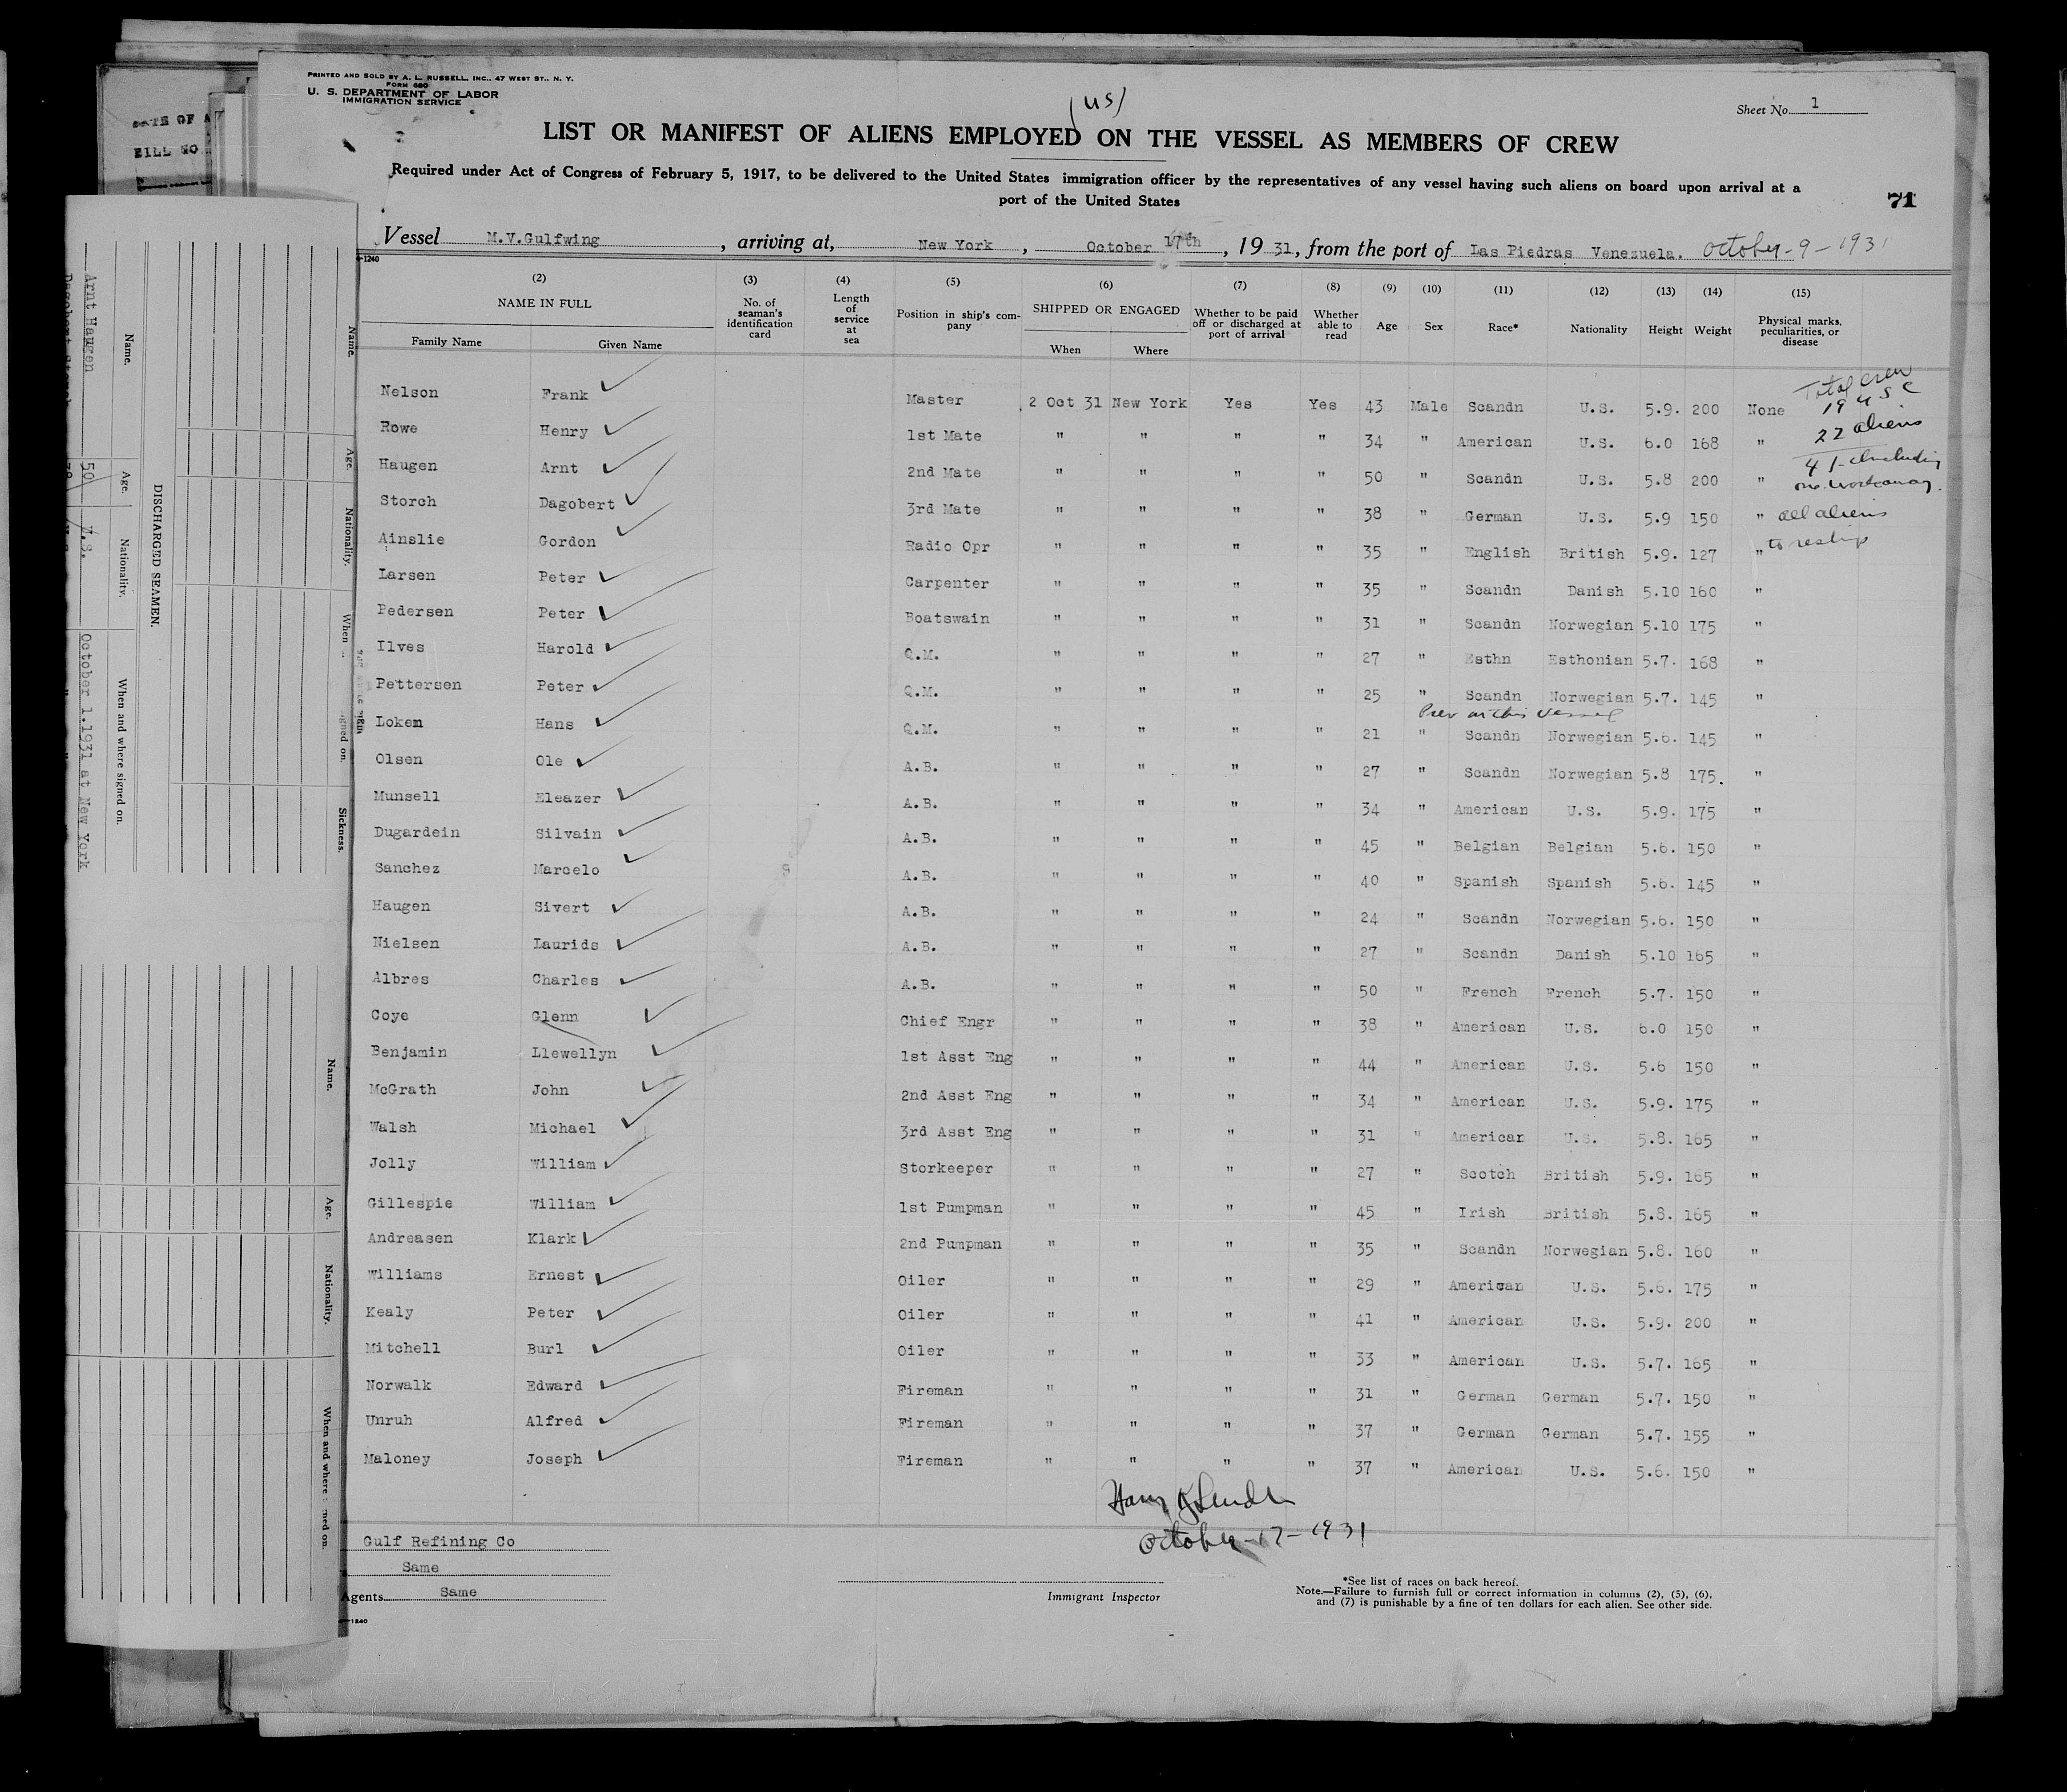 PRINTED AND SOLD BY A. L. RUSSELL, INC., 47 WEST ST., N. Y.
FORM 680
U. S. DEPARTMENT OF LABOR
IMMIGRATION SERVICE
(US)
Sheet No. 1
LIST OR MANIFEST OF ALIENS EMPLOYED ON THE VESSEL AS MEMBERS OF CREW
Required under Act of Congress of February 5, 1917, to be delivered to the United States immigration officer by the representatives of any vessel having such aliens on board upon arrival at a
port of the United States
71
Vessel M.V.Gulfwing, arriving at, New York, October 17th, 1931, from the port of Las Piedras Venezuela. October-9-1931
(2) NAME IN FULL Family Name Given Name (3) No. of seaman's identification card (4) Length of service at sea (5) Position in ship's company (6) SHIPPED OR ENGAGED When Where (7) Whether to be paid off or discharged at port of arrival (8) Whether able to read (9) Age (10) Sex (11) Race* (12) Nationality (13) Height (14) Weight (15) Physical marks, peculiarities, or disease
Nelson Frank Master 2 Oct 31 New York Yes Yes 43 Male Scandn U.S. 5.9. 200 None
Rowe Henry 1st Mate " " " " 34 " American U.S. 6.0 168 "
Haugen Arnt 2nd Mate " " " " 50 " Scandn U.S. 5.8 200 "
Storch Dagobert 3rd Mate " " " " 38 " German U.S. 5.9 150 "
Ainslie Gordon Radio Opr " " " " 35 " English British 5.9. 127 "
Larsen Peter Carpenter " " " " 35 " Scandn Danish 5.10 160 "
Pedersen Peter Boatswain " " " " 31 " Scandn Norwegian 5.10 175 "
Ilves Harold Q.M. " " " " 27 " Esthn Esthonian 5.7. 168 "
Pettersen Peter Q.M. " " " " 25 " Scandn Norwegian 5.7. 145 "
Prev on this vessel
Loken Hans Q.M. " " " " 21 " Scandn Norwegian 5.6. 145 "
Olsen Ole A.B. " " " " 27 " Scandn Norwegian 5.8 175. "
Munsell Eleazer A.B. " " " " 34 " American U.S. 5.9. 175 "
Dugardein Silvain A.B. " " " " 45 " Belgian Belgian 5.6. 150 "
Sanchez Marcelo A.B. " " " " 40 " Spanish Spanish 5.6. 145 "
Haugen Sivert A.B. " " " " 24 " Scandn Norwegian 5.6. 150 "
Nielsen Laurids A.B. " " " " 27 " Scandn Danish 5.10 165 "
Albres Charles A.B. " " " " 50 " French French 5.7. 150 "
Coye Glenn Chief Engr " " " " 38 " American U.S. 6.0 150 "
Benjamin Llewellyn 1st Asst Eng " " " " 44 " American U.S. 5.6 150 "
McGrath John 2nd Asst Eng " " " " 34 " American U.S. 5.9. 175 "
Walsh Michael 3rd Asst Eng " " " " 31 " American U.S. 5.8. 165 "
Jolly William Storkeeper " " " " 27 " Scotch British 5.9. 165 "
Gillespie William 1st Pumpman " " " " 45 " Irish British 5.8. 165 "
Andreasen Klark 2nd Pumpman " " " " 35 " Scandn Norwegian 5.8. 160 "
Williams Ernest Oiler " " " " 29 " American U.S. 5.6. 175 "
Kealy Peter Oiler " " " " 41 " American U.S. 5.9. 200 "
Mitchell Burl Oiler " " " " 33 " American U.S. 5.7. 165 "
Norwalk Edward Fireman " " " " 31 " German German 5.7. 150 "
Unruh Alfred Fireman " " " " 37 " German German 5.7. 155 "
Maloney Joseph Fireman " " " " 37 " American U.S. 5.6. 150 "
Total crew
19 USC
22 aliens
41 - Including
one workaway.
all aliens
to reship
October-17-1931
Gulf Refining Co
Same
Agents Same
Immigrant Inspector
*See list of races on back hereof.
Note.—Failure to furnish full or correct information in columns (2), (5), (6),
and (7) is punishable by a fine of ten dollars for each alien. See other side.
DISCHARGED SEAMEN.
Name. Age. Nationality. When and where signed on.
Arnt Haugen 50 U.S. October 1.1931 at New York
Name. Age. Nationality. When signed on. Sickness.
Name. Age. Nationality. When and where signed on.